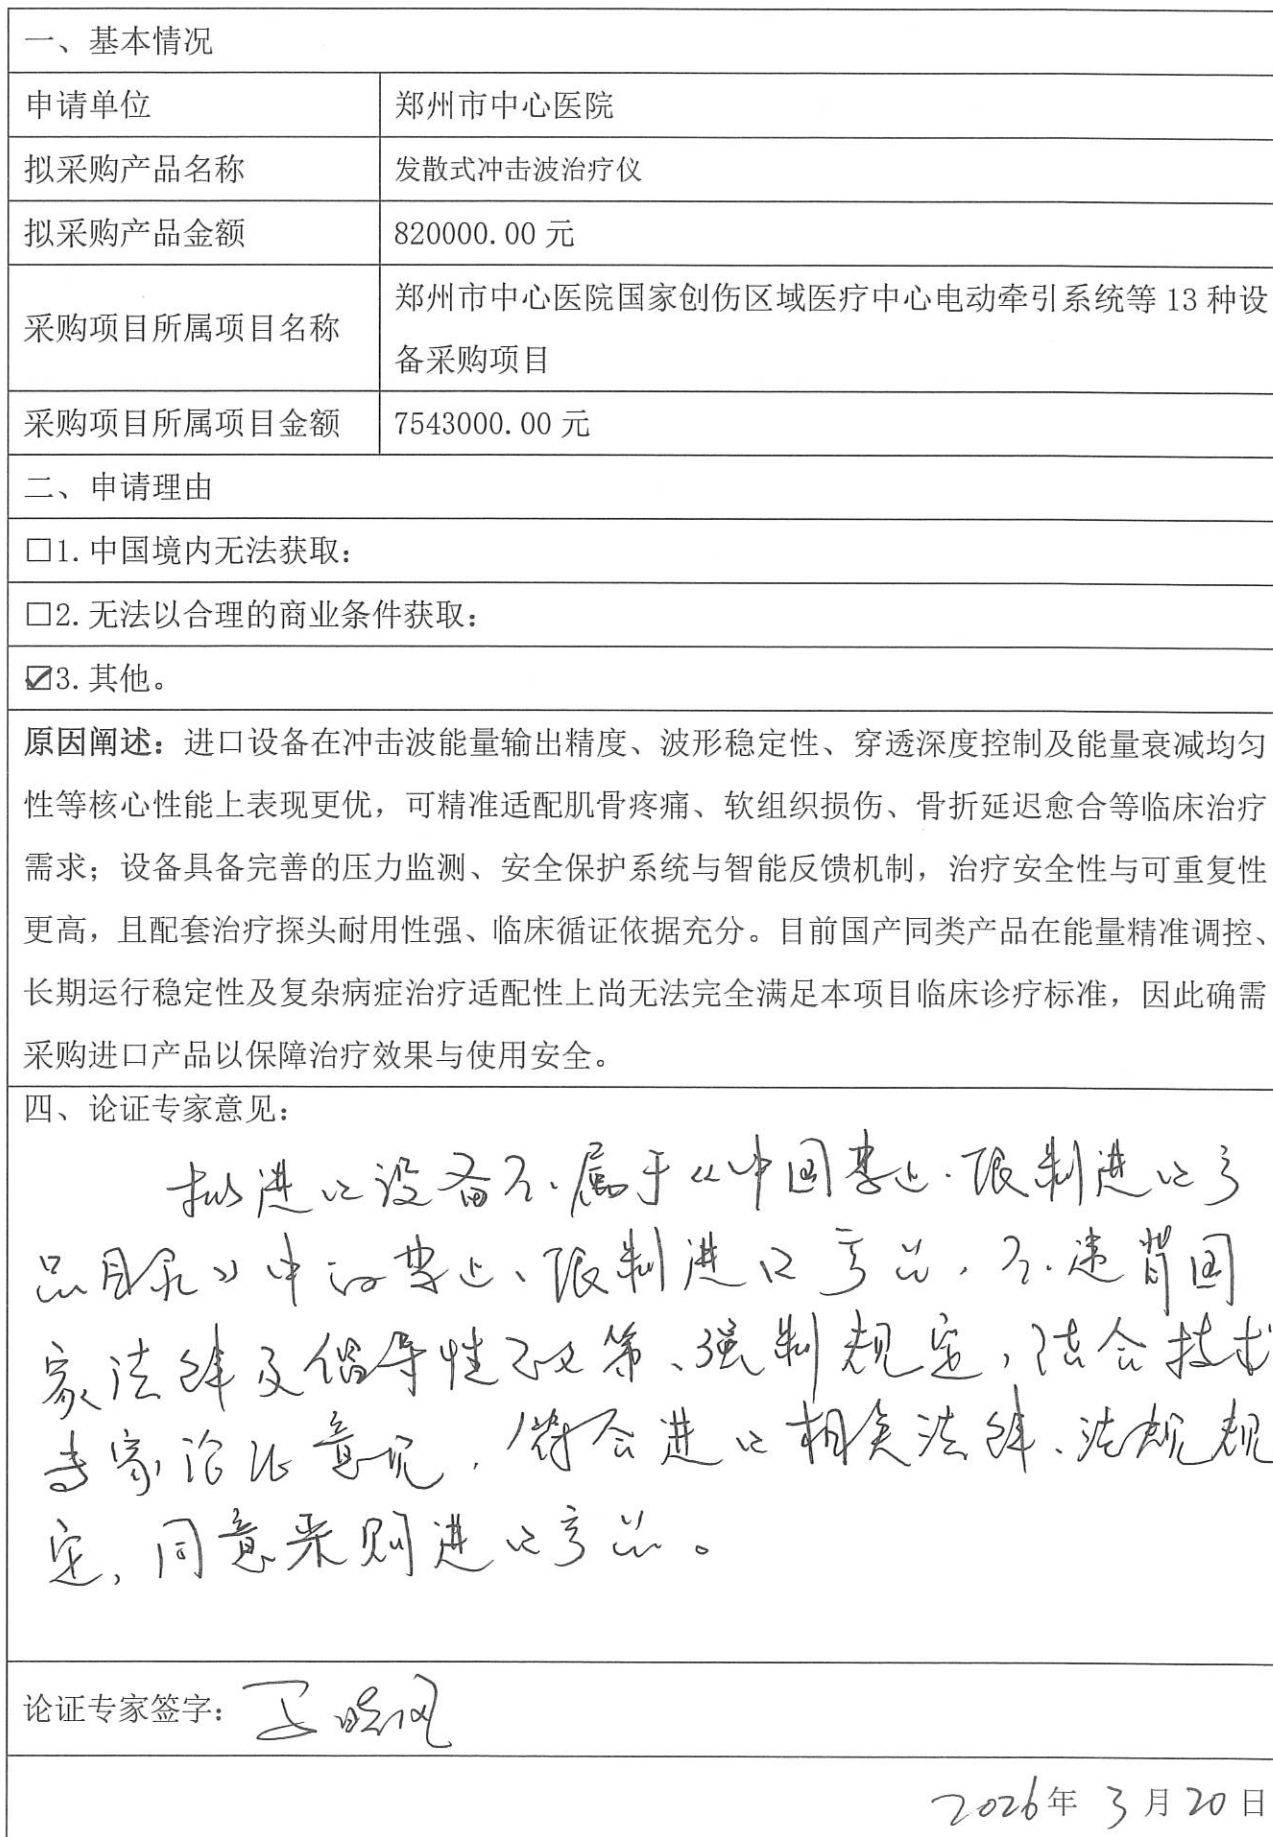 一、基本情况
申请单位
郑州市中心医院
拟采购产品名称
发散式冲击波治疗仪
拟采购产品金额
820000.00 元
采购项目所属项目名称
郑州市中心医院国家创伤区域医疗中心电动牵引系统等 13 种设
备采购项目
采购项目所属项目金额
7543000.00 元
二、申请理由
□1. 中国境内无法获取：
□2. 无法以合理的商业条件获取：
☑3. 其他。
原因阐述：进口设备在冲击波能量输出精度、波形稳定性、穿透深度控制及能量衰减均匀
性等核心性能上表现更优，可精准适配肌骨疼痛、软组织损伤、骨折延迟愈合等临床治疗
需求；设备具备完善的压力监测、安全保护系统与智能反馈机制，治疗安全性与可重复性
更高，且配套治疗探头耐用性强、临床循证依据充分。目前国产同类产品在能量精准调控、
长期运行稳定性及复杂病症治疗适配性上尚无法完全满足本项目临床诊疗标准，因此确需
采购进口产品以保障治疗效果与使用安全。
四、论证专家意见：
拟进口设备不属于《中国禁止、限制进口产
品目录》中的禁止、限制进口产品，不违背国
家法律及倡导性政策、强制规定，结合技术
专家论证意见，符合进口相关法律、法规规
定，同意采购进口产品。
论证专家签字：
2026年 3 月 20 日